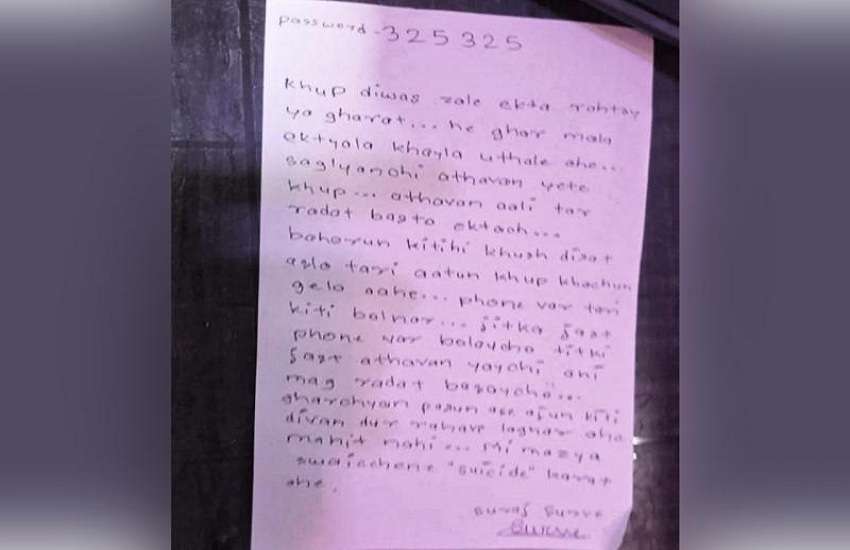 password - 325325
khup diwas zale ekta rahtay
ya gharat... he ghar mala
ektyala khayla uthale ahe...
saglyanchi athavan yete
khup... athavan aali tar
radat basto ektach...
baherun kitihi khush disat
aslo tari aatun khup khachun
gelo aahe... phone var tari
kiti bolnar... jitka jast
phone var bolaycho titki
jast athavan yaychi ani
mag radat basaycho...
gharchyan pasun ase ajun kiti
divas dur rahave lagnar ahe
mahit nahi... mi mazya
swaicchene "suicide" karat
ahe.
suraj surve